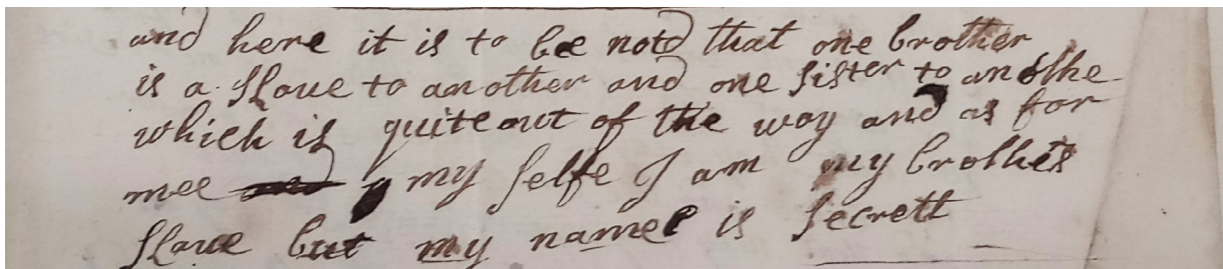 and here it is to bee notd that one brother
is a slave to another and one sister to anothe
which is quite out of the way and as for
mee my selfe I am my brothers
slave but my name is secrett